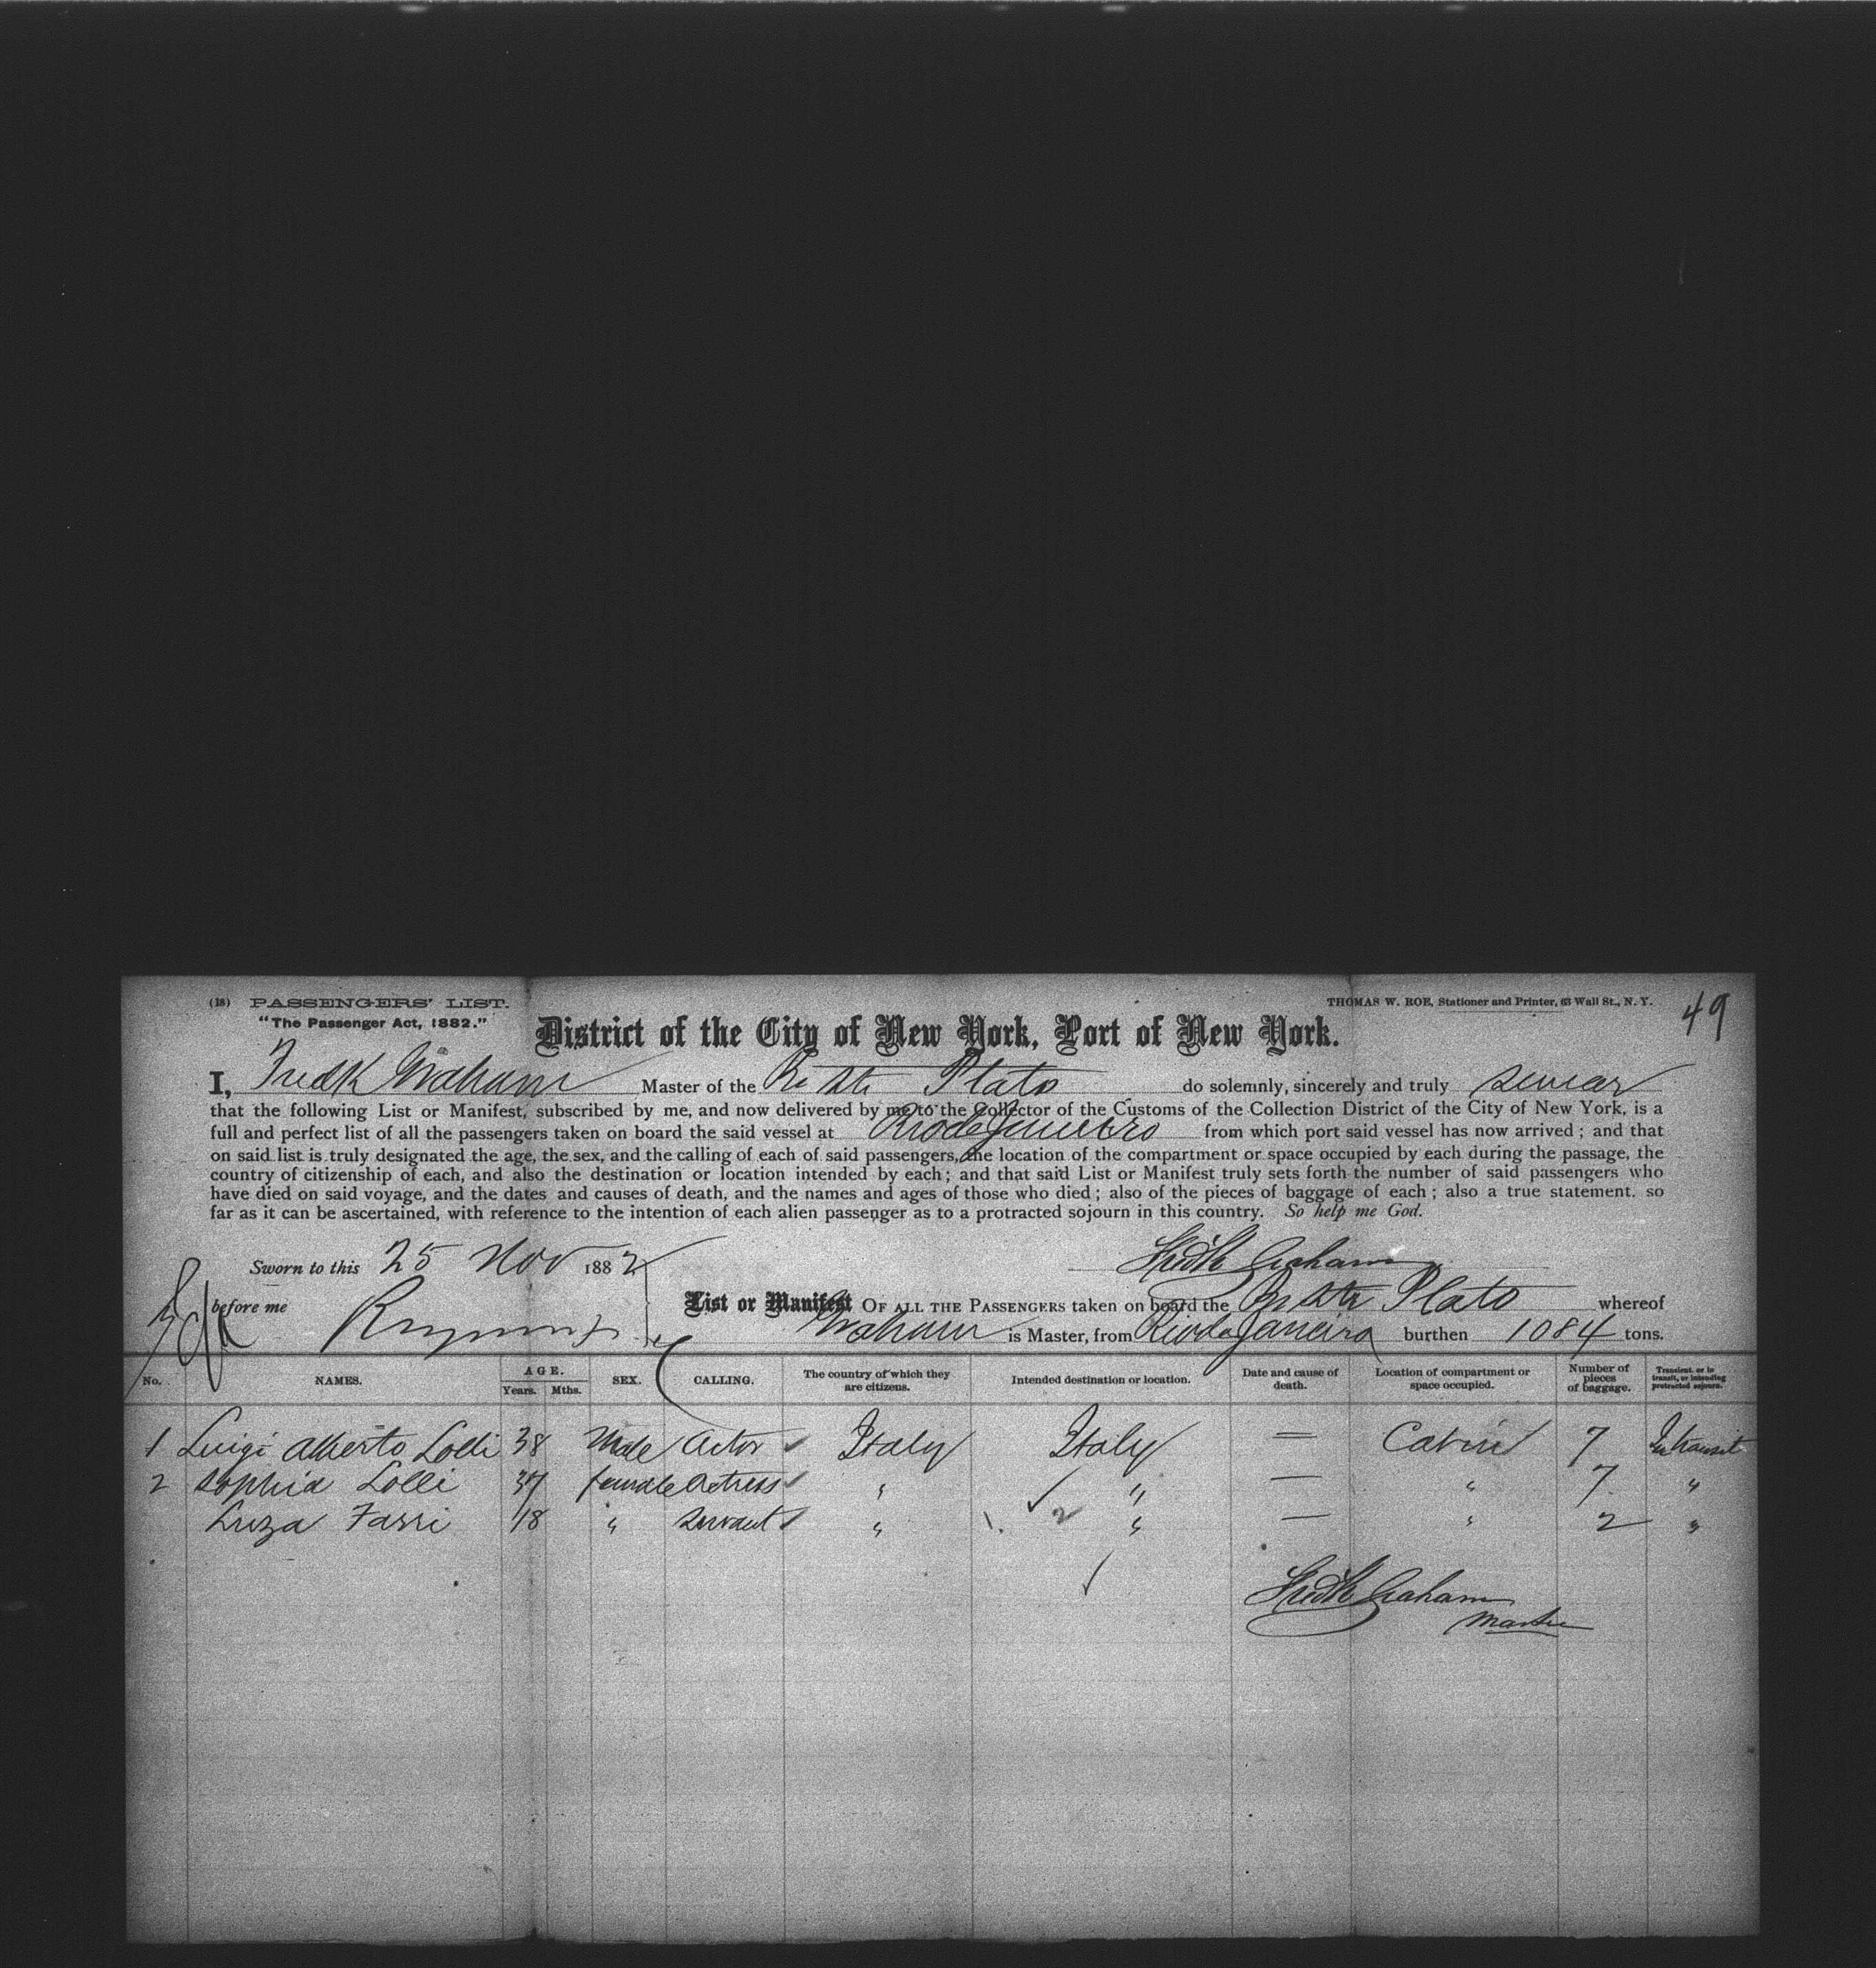 (18) PASSENGERS' LIST.
THOMAS W. ROE, Stationer and Printer, 63 Wall St., N. Y.
49
"The Passenger Act, 1882."
District of the City of New York, Port of New York.
I, Fredk Graham Master of the Br Str Plato do solemnly, sincerely and truly swear
that the following List or Manifest, subscribed by me, and now delivered by me to the Collector of the Customs of the Collection District of the City of New York, is a
full and perfect list of all the passengers taken on board the said vessel at Rio de Janeiro from which port said vessel has now arrived; and that
on said list is truly designated the age, the sex, and the calling of each of said passengers, the location of the compartment or space occupied by each during the passage, the
country of citizenship of each, and also the destination or location intended by each; and that said List or Manifest truly sets forth the number of said passengers who
have died on said voyage, and the dates and causes of death, and the names and ages of those who died; also of the pieces of baggage of each; also a true statement. so
far as it can be ascertained, with reference to the intention of each alien passenger as to a protracted sojourn in this country. So help me God.
Sworn to this 25 Nov 1882
Fredk Graham
before me
List or Manifest OF ALL THE PASSENGERS taken on board the Br Str Plato whereof
Graham is Master, from Rio de Janeiro burthen 1084 tons.
No. NAMES. AGE. Years. Mths. SEX. CALLING. The country of which they are citizens. Intended destination or location. Date and cause of death. Location of compartment or space occupied. Number of pieces of baggage. Transient, or in transit, or intending protracted sojourn.
1 Luigi Alberto Lolli 38 Male Actor Italy Italy = Cabin 7 In transit
2 Sophia Lolli 37 female Actress " " — " 7 "
Luza Fassi 18 " Servant " 2 " — " 2 "
Fredk Graham
Master